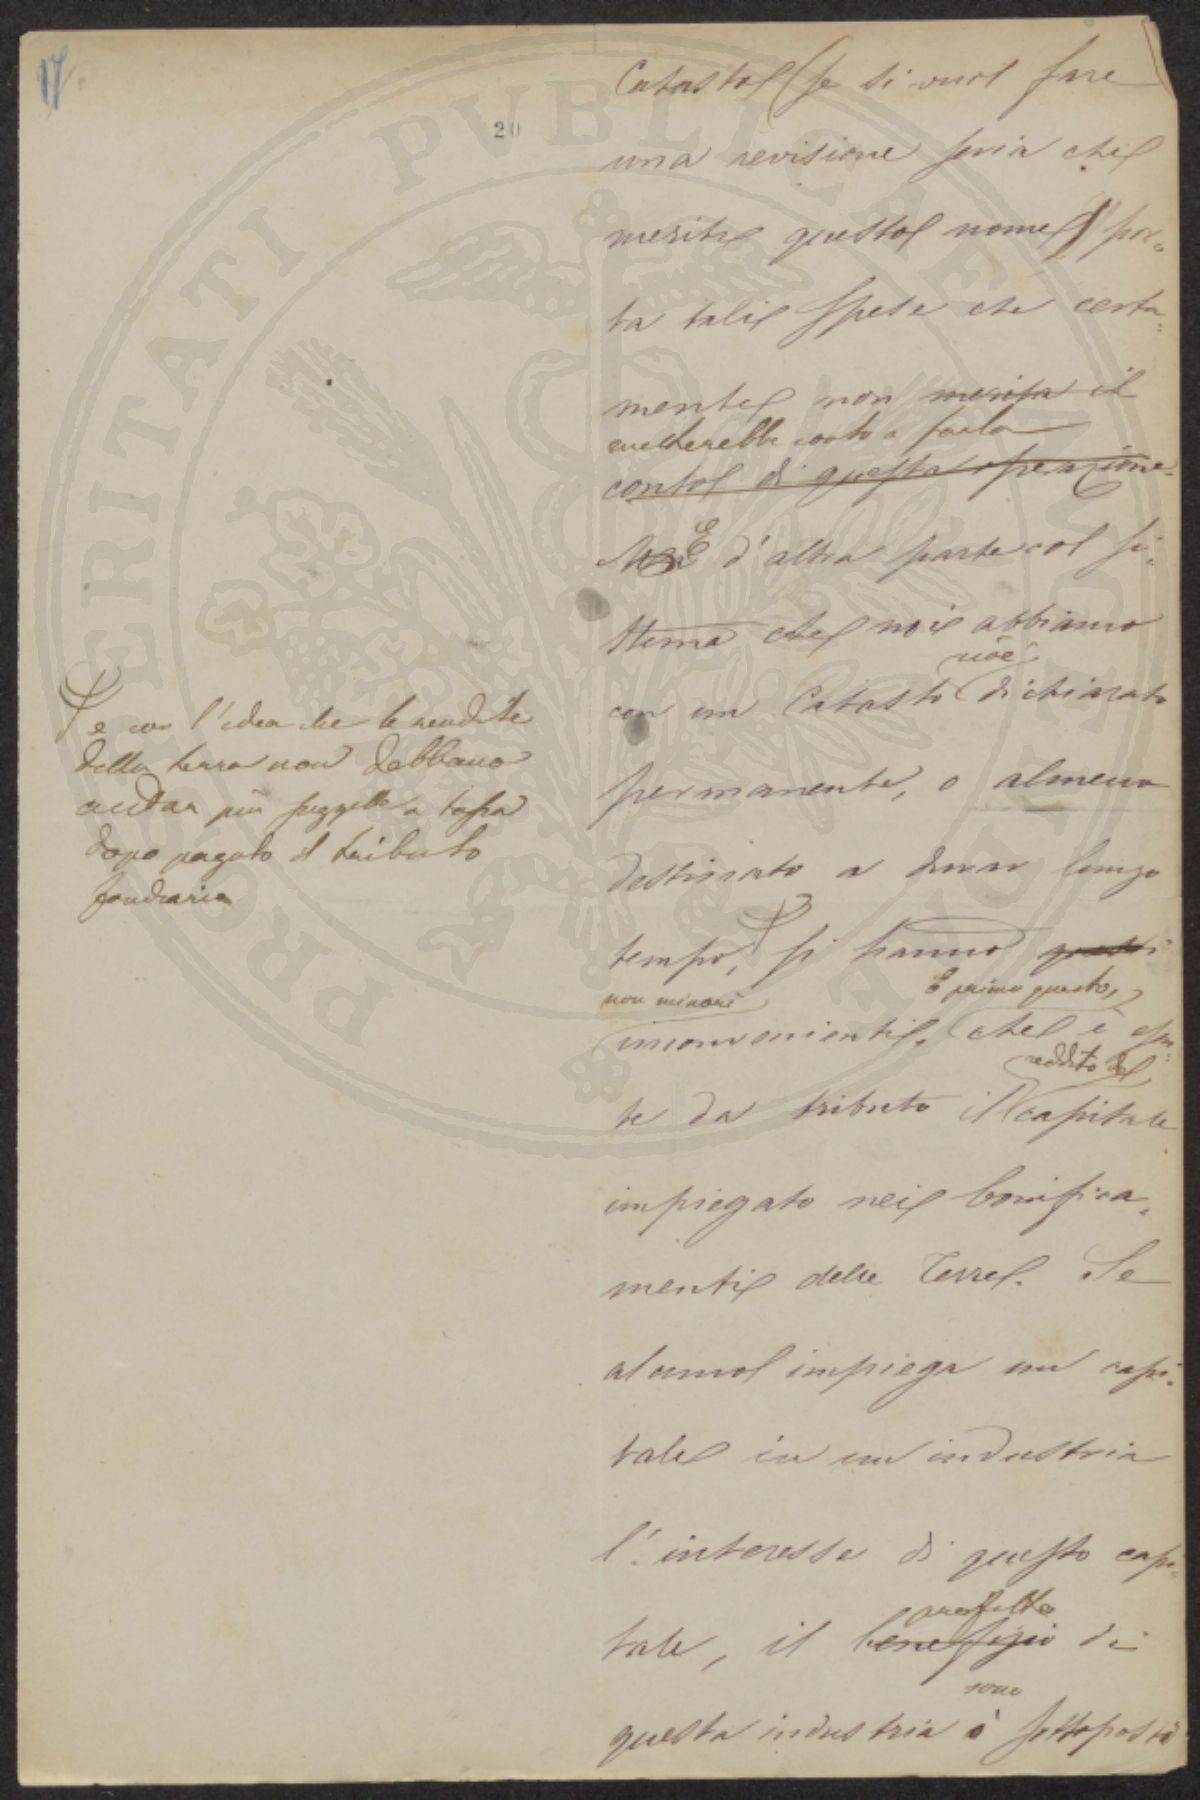 17
20
PROSPERITATI PVBLICAE
Catasto (se si vuol fare
una revisione seria che
meriti questo nome) por-
ta tali spese che certa-
mente non merita il
metterebbe conto a farla
conto di questa operazione.
Ma E d'altra parte col si-
stema che noi abbiamo
cioè
con un Catasto dichiarato
permanente, o almeno
destinato a durar lungo
tempo, si hanno questi
non minori E primo questo,
inconvenienti, che è esen-
reddito del
te da tributo il capitale
impiegato nei bonifica-
menti delle Terre. Se
alcuno impiega un capi-
tale in un industria
l'interesse di questo capi-
tale, il benefizio di
profitto
sono
questa industria è sottoposti
e con l'idea che le rendite
della terra non debbano
andar più soggette a tassa
dopo pagato il tributo
fondiario